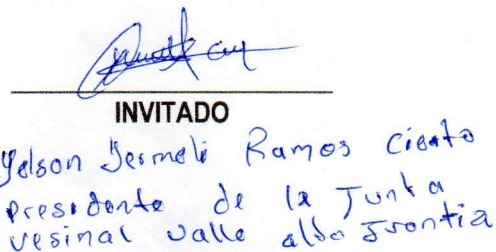 INVITADO
Yelson Yermeli Ramos Ciento
presidente de la Junta
vesinal valle alto Frontia